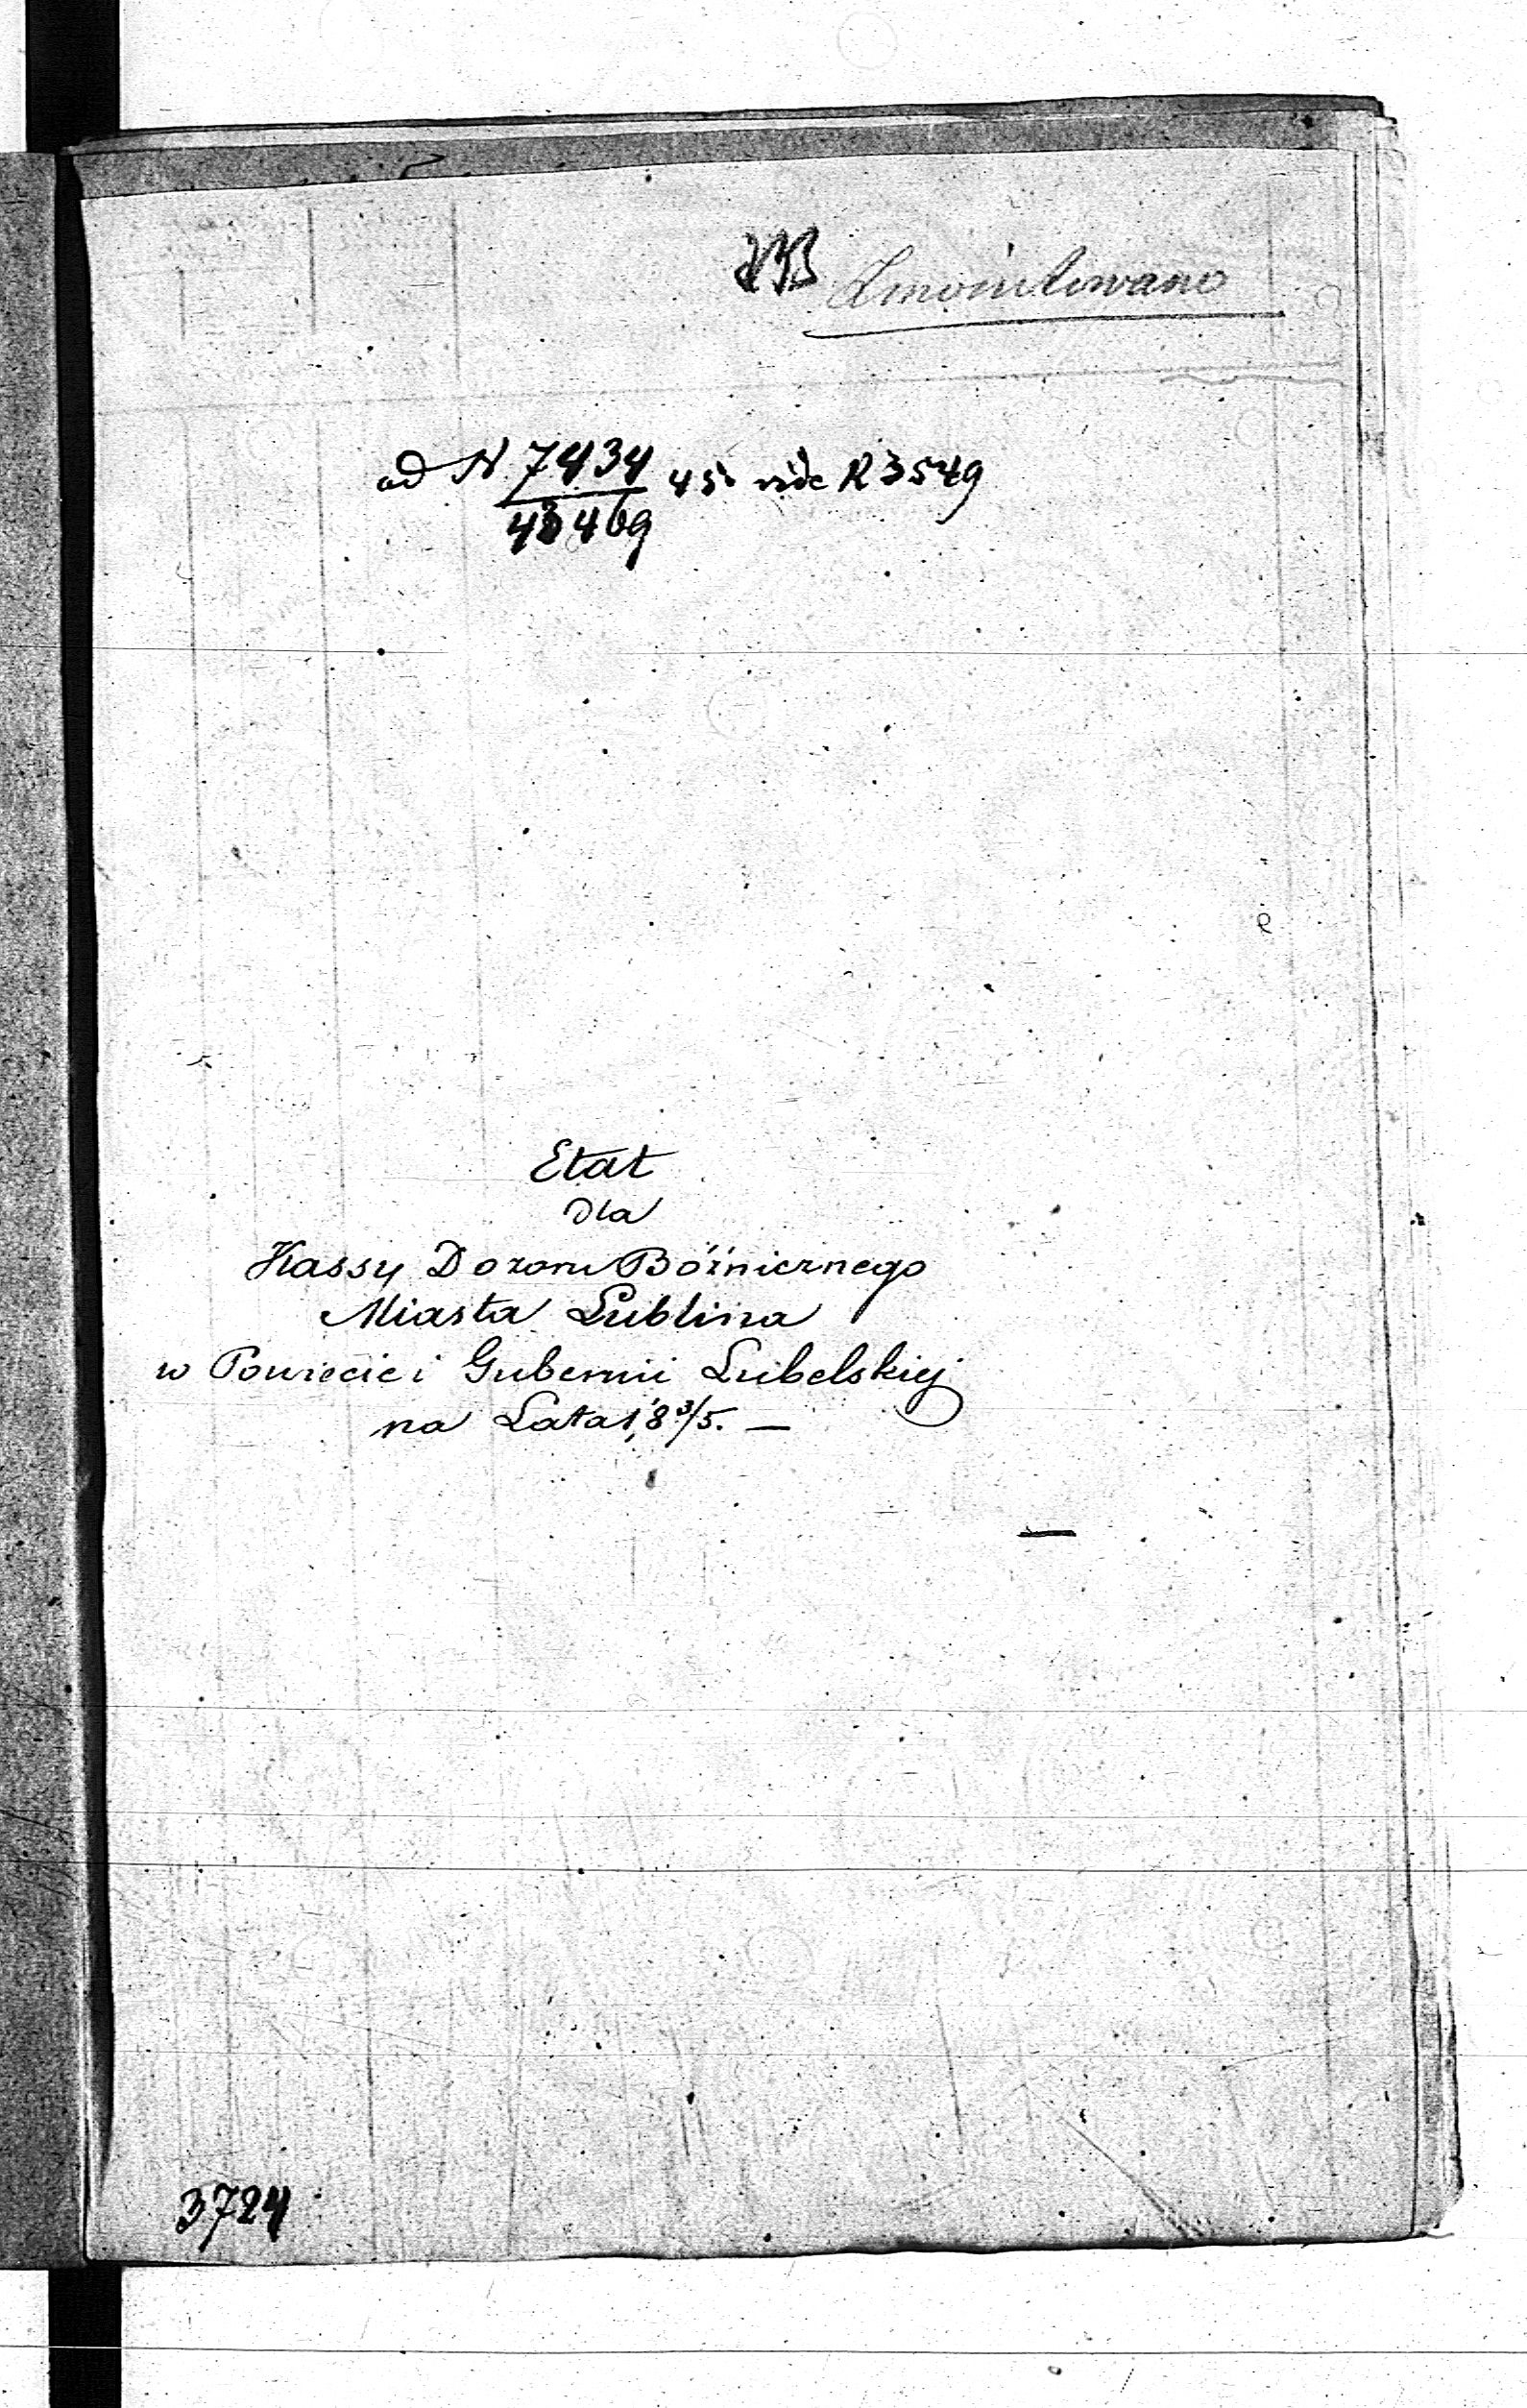 Zmonitowano
ad N 7434 45 vide R 3549
43469
Etat
Dla
Kassy Dozoru Bóżnicznego
Miasta Lublina
w Powiecie i Gubernii Lubelskiej
na Lata 184 3/5. —
3724